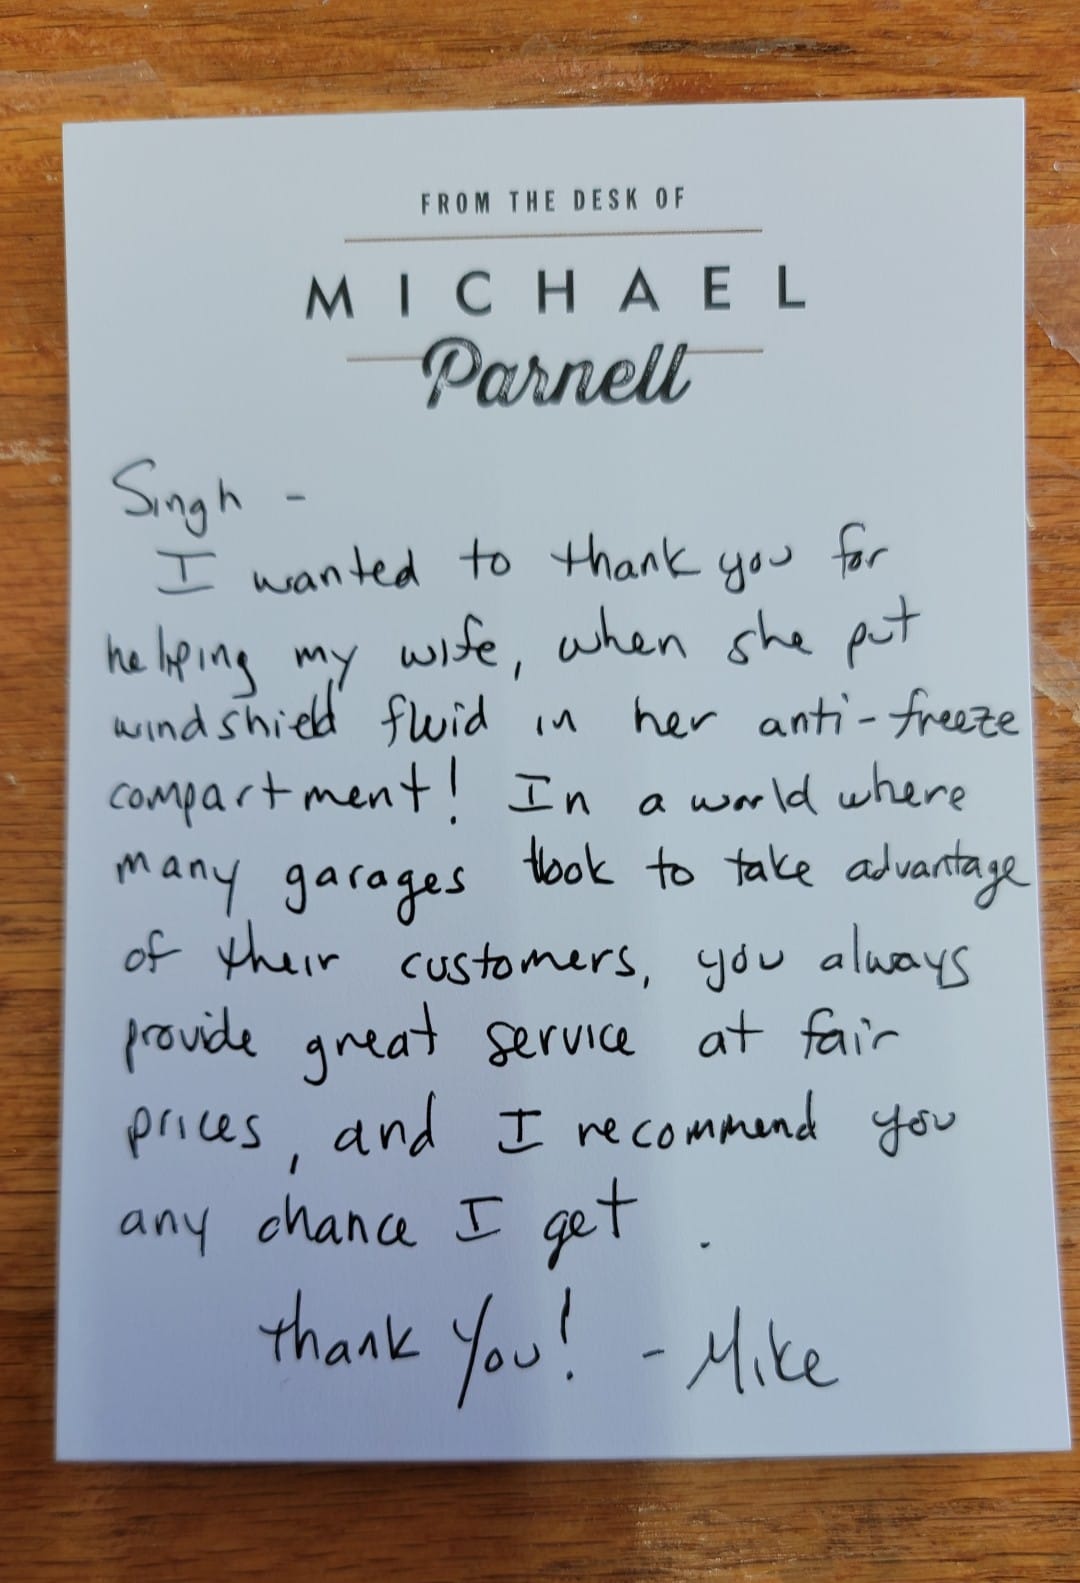 FROM THE DESK OF
MICHAEL
Parnell
Singh -
I wanted to thank you for
helping my wife, when she put
windshield fluid in her anti-freeze
compartment! In a world where
many garages look to take advantage
of their customers, you always
provide great service at fair
prices, and I recommend you
any chance I get.
thank You! - Mike